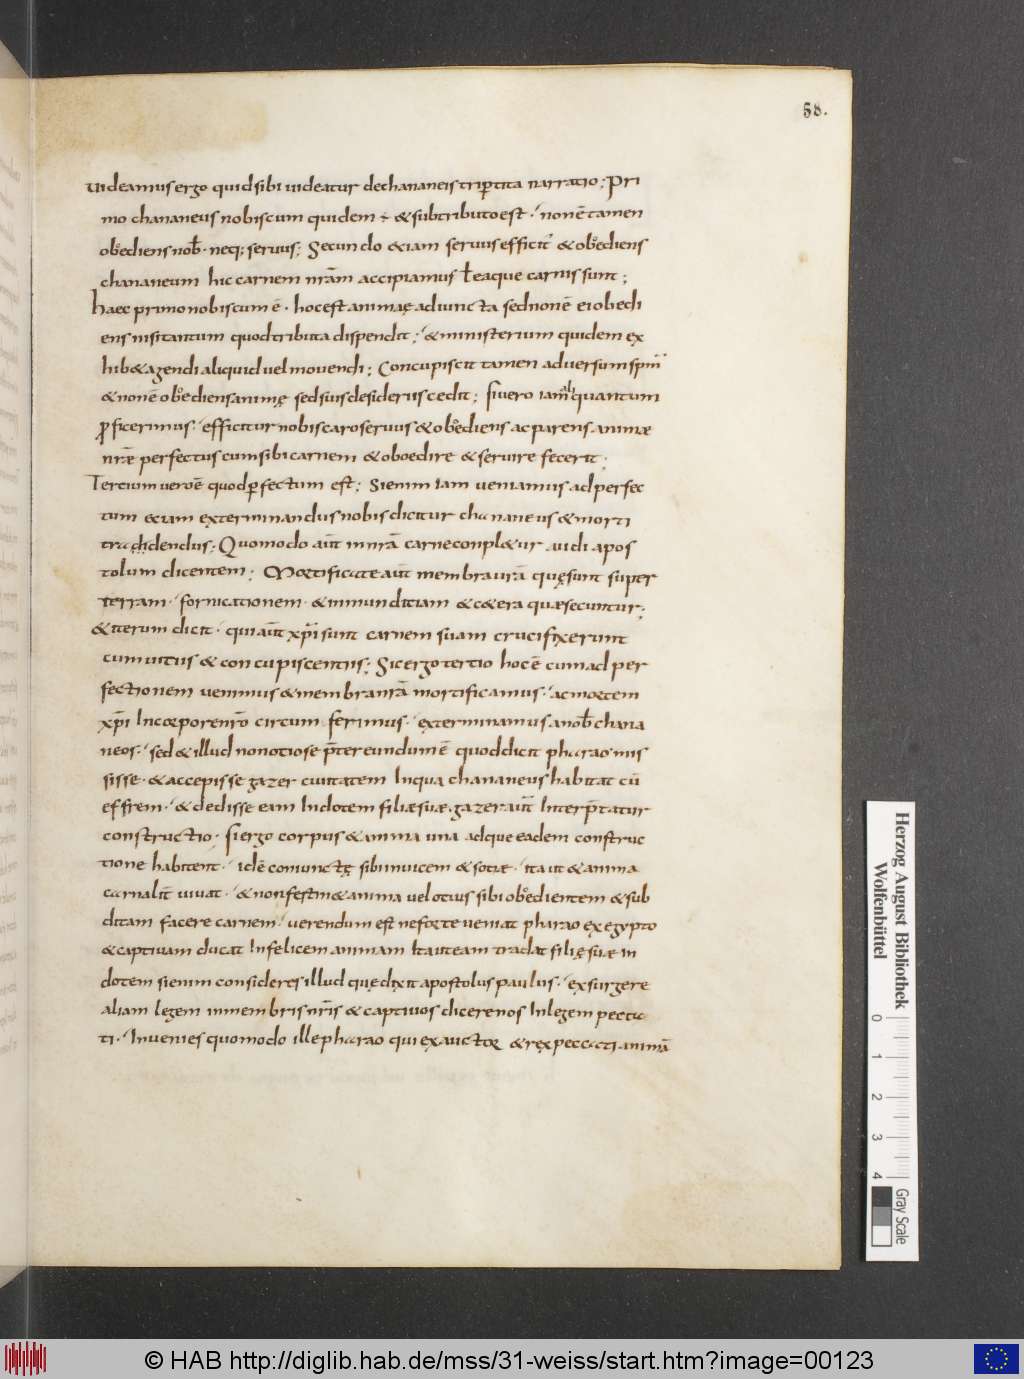 58.
uideamus ergo quid sibi uideatur de chananeis tripertita narratio; Pri
mo chananeus nobiscum quidem ÷ & sub tributo est · non ē tamen
oboediens nob̄ · neq; seruus; Secundo &iam seruus efficit̄ & oboediens
chananeum hic carnem nr̄am accipiamus ł eaque carnis sunt;
haec primo nobiscum ē · hoc est animae adiuncta sed non ē ei obedi
ens nisi tantum quod tributa dispendit; & ministerium quidem ex
hib& agendi aliquid uel mouendi; Concupiscit tamen aduersum spm̄
& non ē oboediens animę sed suis desideriis cedit; si uero iam aliquantum
ꝓficerimus · efficitur nobis caro seruus & oboediens ac parens animae
nrae perfectus cum sibi carnem & oboedire & seruire fecerit ·
Tercium uero ē quod ꝑfectum est; Si enim iam ueniamus ad perfec
tum eciam exterminandus nobis dicitur chananeus & morti
tradendus; Quomodo aūt in nrā carne conpl&ur audi apos
tolum dicentem; Mortificate aūt membra urā quę sunt super
terram · fornicationem · & inmunditiam & c&era quae secuntur;
& iterum dicit · qui aūt xp̄i sunt carnem suam crucifixerunt
cum uitiis & concupiscentiis; Sic ergo tertio hoc ē cum ad per
fectionem uenimus & membra nrā mortificamus · ac mortem
xp̄i In corpore nr̄o circum ferimus · exterminamus a nob̄ chana
neos · sed & illud non otiose p̄tereundum ē quod dicit pharao mis
sisse · & accepisse gazer ciuitatem In qua chananeus habitat cū
effrem · & dedisse eam In dotem filiae suae · gazer aūt Interp̄tatur
constructio · si ergo corpus & anima una adque eadem construc
tione habitent · id ē coniunctę sibi inuicem & sotiae · ita ut & anima
carnalit̄ uiuat · & non festin& anima uelotius sibi oboedientem & sub
ditam facere carnem · uerendum est ne forte ueniat pharao ex egypto
& captiuam ducat Infelicem animam Ita ut eam tradat filię suae in
dotem si enim consideres illud quę dixit apostolus paulus · exsurgere
aliam legem in membris nr̄is & captiuos dicere nos In legem pecca
ti · Inuenies quomodo ille pharao qui ex auctor & rex peccati animā
Herzog August Bibliothek
Wolfenbüttel
0 1 2 3 4
Gray Scale
© HAB http://diglib.hab.de/mss/31-weiss/start.htm?image=00123